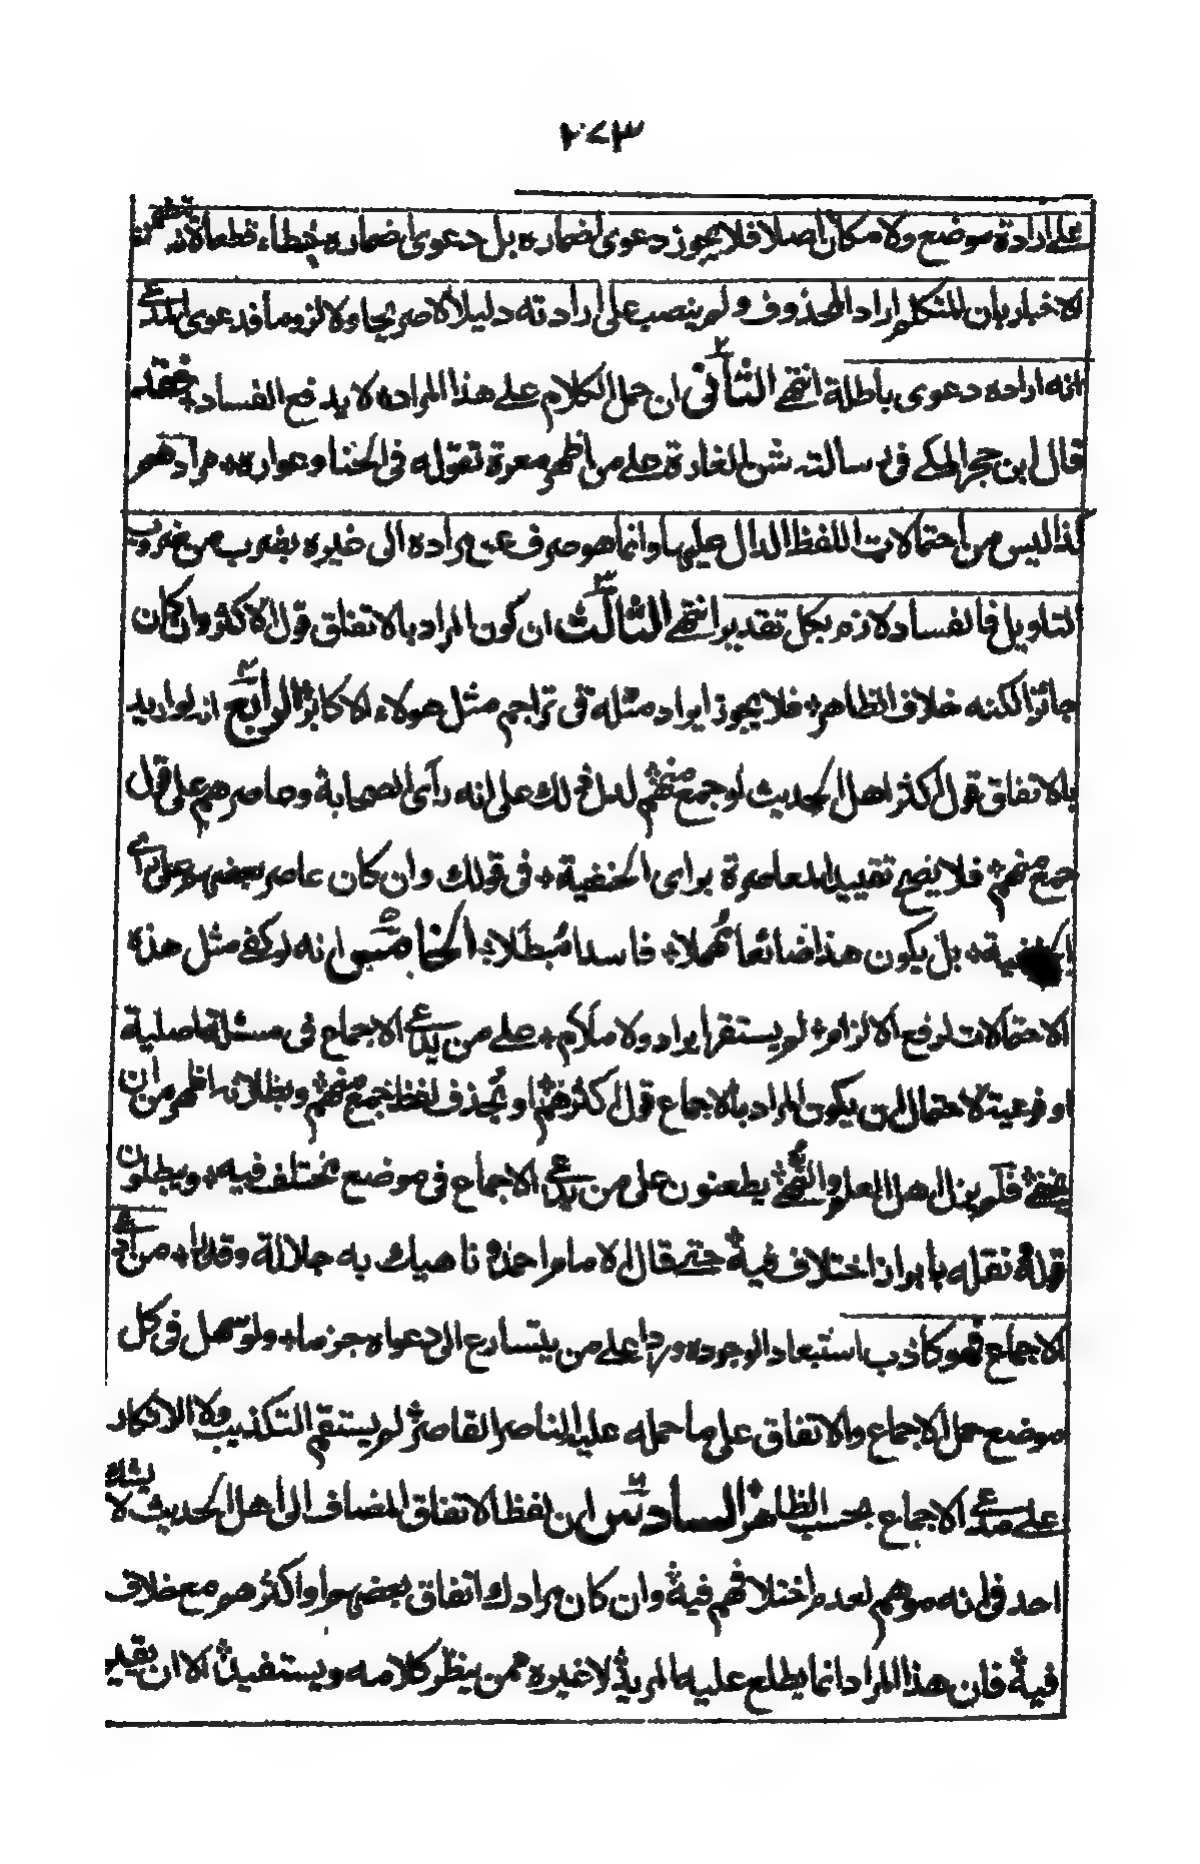 ٢٧٣
على ارادة موضع ولا مكان اصلا فلا يجوز دعوى اضماره بل دعوى اضماره خطاء قطعا لانه
الاخبار بان المتكلم اراد المحذوف ولم ينصب على ارادته دليلا لا صريحا ولا لزوما فدعوى المدعي
انه اراده دعوى باطلة انتهى الثاني ان حمل الكلام على هذا المراد لا يدفع الفساد فقد
قال ابن حجر المكي في رسالته شن الغارة على من اظهر معرة تقوله في الحنا وعواره مرادهم
كذا ليس من احتمالات اللفظ الدال عليها وانما هو صرف عن مراده الى غيره بضرب من ضروب
التاويل فالفساد لازم بكل تقدير انتهى الثالث ان كون المراد بالاتفاق قول الاكثر وان كان
جائزا لكنه خلاف الظاهر فلا يجوز ايراد مثله في تراجم مثل هولاء الاكابر الرابع انه لو اريد
بالاتفاق قول اكثر اهل الحديث او جمع منهم لدل ذلك على انه رأى الصحابة وعاصرهم على قول
جمع منهم فلا يصح تقييد المعاصرة براى الحنفية في قولك وان كان عاصر بعضهم على راى
الحنفية بل يكون هذا ضائعا مهملا فاسدا مبطلا الخامس انه لو كفى مثل هذه
الاحتمالات لدفع الالزام لم يستقر ايراد ولا ملام على من يدعي الاجماع في مسئلة اصلية
او فرعية لاحتمال ان يكون المراد بالاجماع قول اكثرهم او بحذف لفظ جمع منهم وبطلانه اظهر من ان
يخفى فلم يزل اهل العلم والنهى يطعنون على من يدعي الاجماع في موضع مختلف فيه ويبطلون
قوله نقله بابراز اختلاف فيه حتى قال الامام احمد ناهيك به جلالة وقدرا من ادعى
الاجماع فهو كاذب استبعادا لوجوده وردا على من يتسارع الى دعواه جزما ولو سهل في كل
موضع حمل الاجماع والاتفاق على ما حمله عليه الناصر القاصر لم يستقم التكذيب ولا الانكار
على مدعي الاجماع بحسب الظاهر السادس ان لفظ الاتفاق المضاف الى اهل الحديث لا يشك
احد في انه موهم لعدم اختلافهم فيه وان كان مرادك اتفاق بعضهم او اكثرهم مع خلاف
فيه فان هذا المراد انما يطلع عليه المريد لا غيره ممن ينظر كلامه ويستفيد الا ان يقيد